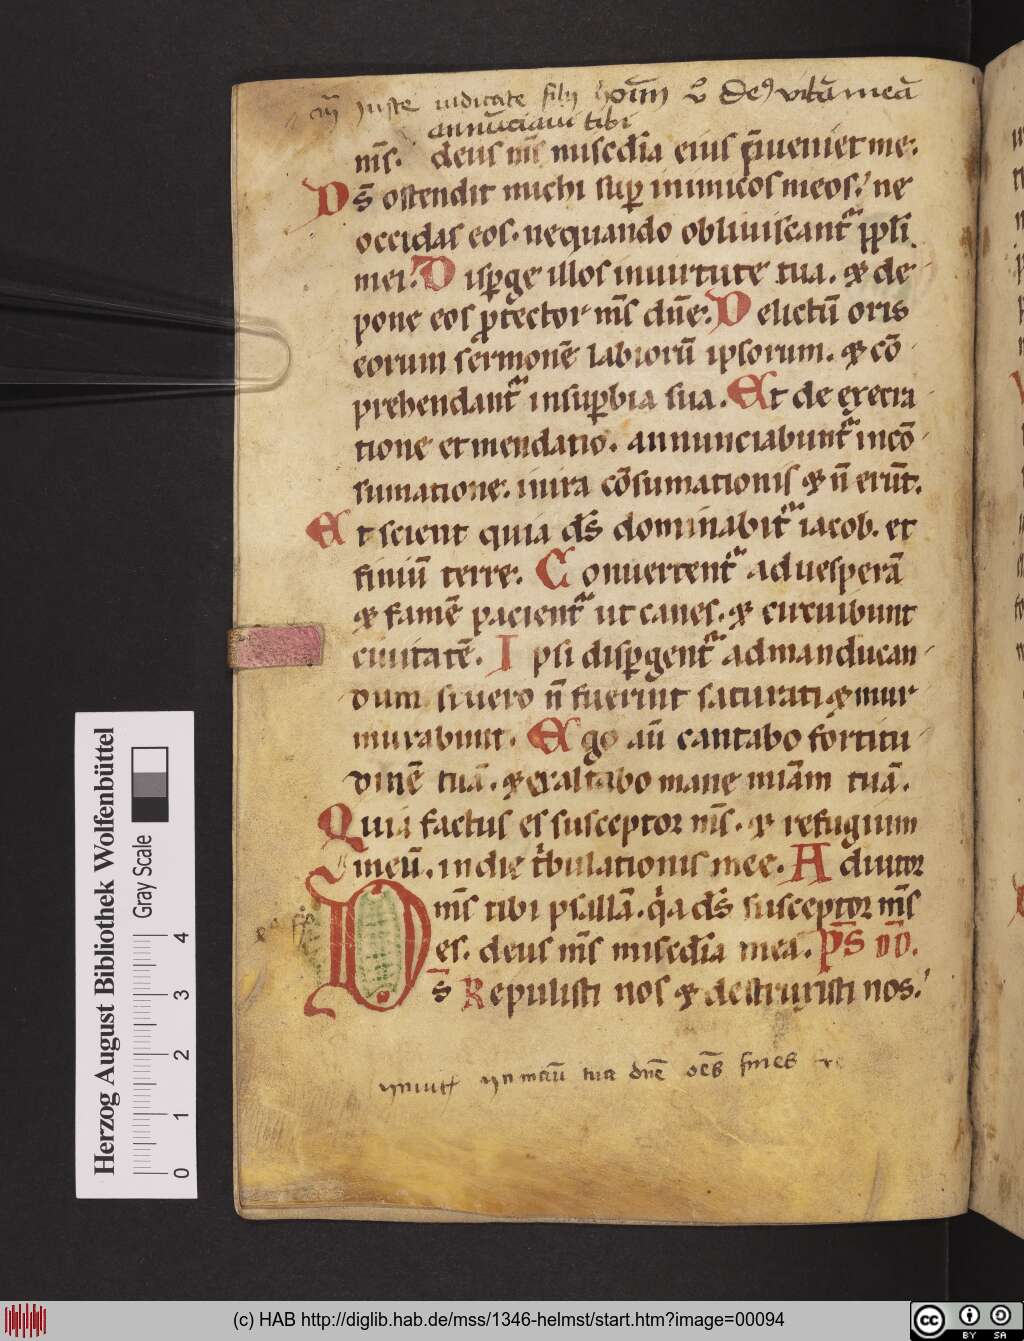 Juste iudicate filij hoīm Deꝰ vitā meā
annūciaui tibi
mš. deus mš misc̄dia eius p̄ueniet me.
Ds̄ ostendit michi suꝑ inimicos meos. ne
occidas eos. nequando obliuiscant᷑ ppľi
mei. Disꝑge illos in uirtute tua. & de
pone eos ꝓtector mš dn̄e. Delictū oris
eorum sermonē labiorū ipsorum. & cō
prehendant᷑ in suꝑbia sua. Et de execra
tione et mendatio. annunciabunt᷑ in cō
sumatione. in ira cōsumationis & n̄ erūt.
Et scient quia ds̄ dominabit᷑ iacob. et
finiū terre. Conuertent᷑ ad uesperā
& famē pacient᷑ ut canes. & circuibunt
ciuitatē. Ipsi disꝑgent᷑ ad manducan
dum si uero n̄ fuerint saturati & mur
murabunt. Ego aū cantabo fortitu
dinē tuā. & exaltabo mane miām tuā.
Quia factus es susceptor mš. & refugium
meū. in die t̄bulationis mee. Adiutor
mš tibi psallā. q̇a ds̄ susceptor mš
es. deus mš misc̄dia mea. PS̄ DD.
Ds̄ Repulisti nos & destruxisti nos.
in manū tua dn̄e oēs fines
Herzog August Bibliothek Wolfenbüttel
Gray Scale
0 1 2 3 4
(c) HAB http://diglib.hab.de/mss/1346-helmst/start.htm?image=00094
cc BY SA